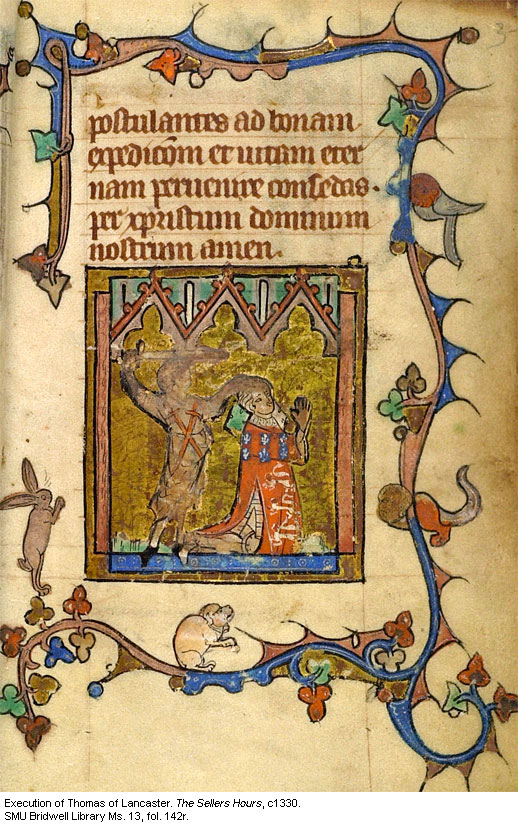 postulantes ad bonam
expedicõm et uitam eter
nam peruenire consedas.
per xpristum dominum
nostrum amen.
Execution of Thomas of Lancaster. The Sellers Hours, c1330.
SMU Bridwell Library Ms. 13, fol. 142r.